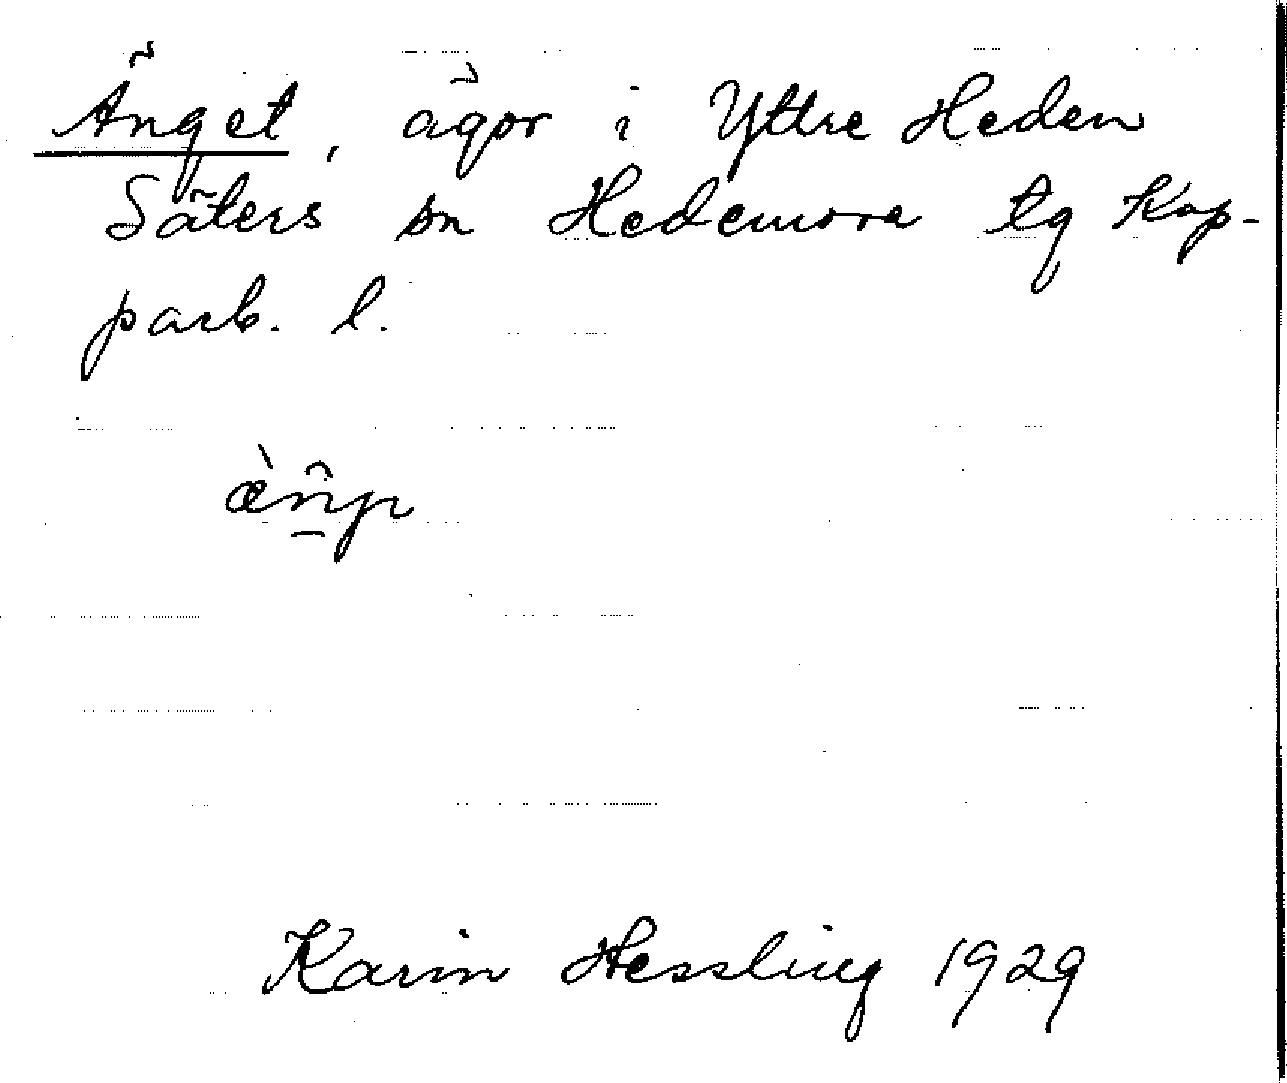 Änget, ägor i Yttre Heden
Säters sn Hedemora tg Kop-
parb. l.
Karin Hessling 1929